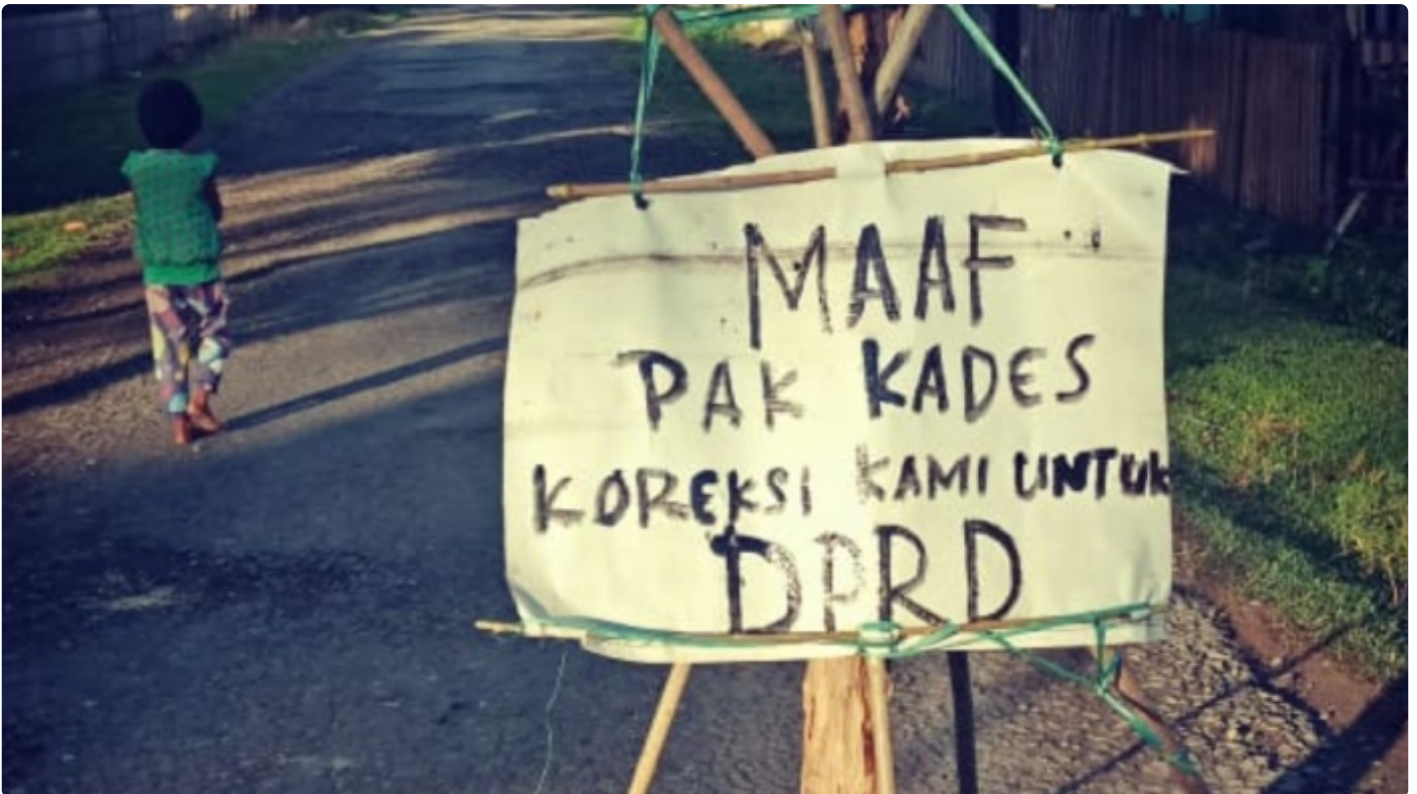 MAAF
PAK KADES
KOREKSI KAMI UNTUK
DPRD